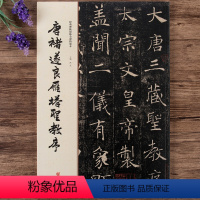 唐褚遂良雁塔聖教序
大唐三藏聖教序
太宗文皇帝製
蓋聞二儀有
粉象优品